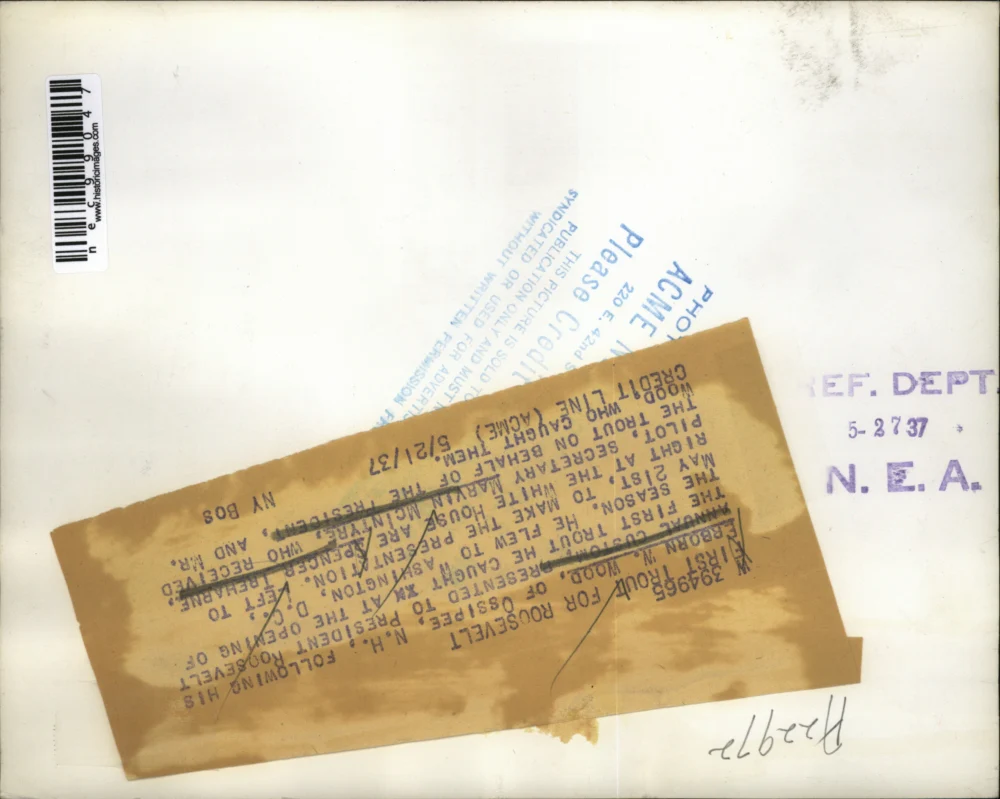 nec99047
www.historicimages.com
PHOT
ACME N
220 E. 42nd S
Please Credit
THIS PICTURE IS SOLD TO
PUBLICATION ONLY AND MUST N
SYNDICATED OR USED FOR ADVERTIS
WITHOUT WRITTEN PERMISSION FR
REF. DEPT.
5-27 37
N. E. A.
W 394965
FIRST TROUT FOR ROOSEVELT
ERBORN N. WOOD, OF OSSIPEE, N.H., FOLLOWING HIS
ANNUAL CUSTOM, PRESENTED TO PRESIDENT ROOSEVELT
THE FIRST TROUT HE CAUGHT XM AT THE OPENING OF
THE SEASON. HE FLEW TO WASHINGTON, D. C.,
MAY 21ST, TO MAKE THE PRESENTATION. LEFT TO
RIGHT AT THE WHITE HOUSE ARE SPENCER TREHARNE,
PILOT, SECRETARY MARVIN MCINTYRE, WHO RECEIVED
THE TROUT ON BEHALF OF THE PRESIDENT, AND MR.
WOOD, WHO CAUGHT THEM.
CREDIT LINE (ACME) 5/21/37 NY BOS